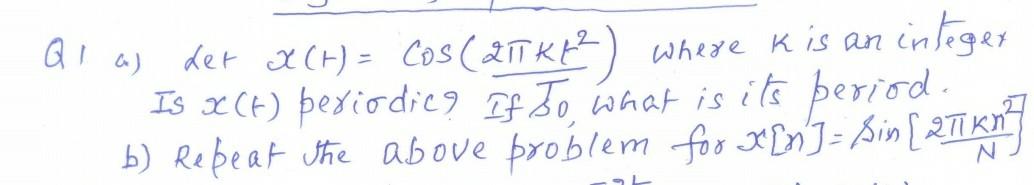 Q1 a) Let x(t) = Cos(2πkt²/T₀) where K is an integer
Is x(t) periodic? If So, what is its period.
b) Repeat the above problem for x[n] = Sin[2πKn²/N]